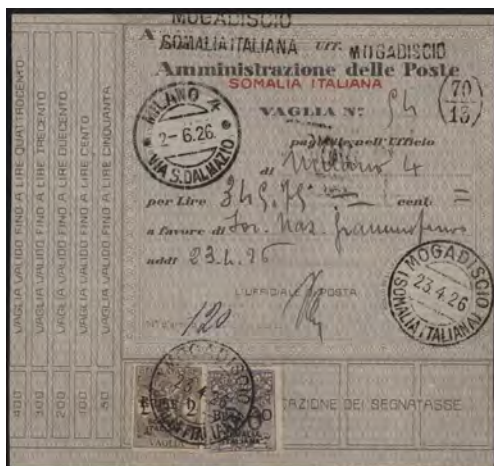 MOGADISCIO
SOMALIA ITALIANA UFF. MOGADISCIO
Amministrazione delle Poste
SOMALIA ITALIANA
VAGLIA N° 54
70
13
pagabile nell'Ufficio
di Milano 4
per Lire 345.75 cent. =
a favore di Soc. Naz. Grammofono
addì 23.4.26
L'UFFICIALE DI POSTA
1,20
MILANO 4
2-6.26.
VIA S. DALMAZIO
MOGADISCIO
23.4.26
(SOMALIA ITALIANA)
VAGLIA VALIDO FINO A LIRE QUATTROCENTO
VAGLIA VALIDO FINO A LIRE TRECENTO
VAGLIA VALIDO FINO A LIRE DUECENTO
VAGLIA VALIDO FINO A LIRE CENTO
VAGLIA VALIDO FINO A LIRE CINQUANTA
400
300
200
100
50
MOGADISCIO
23.4
2
VAGLIA
SOMALIA
ITALIANA
AZIONE DEI SEGNATASSE